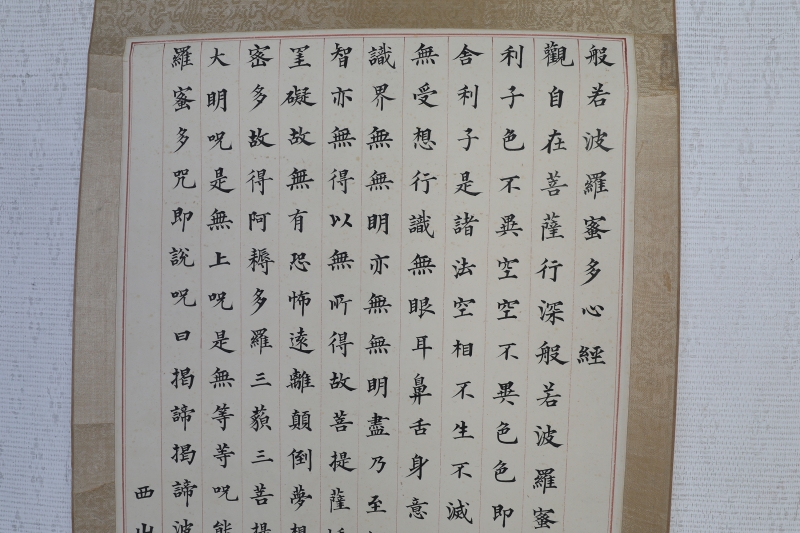 般若波羅蜜多心經
觀自在菩薩行深般若波羅蜜
利子色不異空空不異色色即
舍利子是諸法空相不生不滅
無受想行識無眼耳鼻舌身意
識界無無明亦無無明盡乃至
智亦無得以無所得故菩提薩
罣礙故無有恐怖遠離顛倒夢想
密多故得阿耨多羅三藐三菩提
大明呪是無上呪是無等等呪能
羅蜜多咒即說呪曰揭諦揭諦波
西山